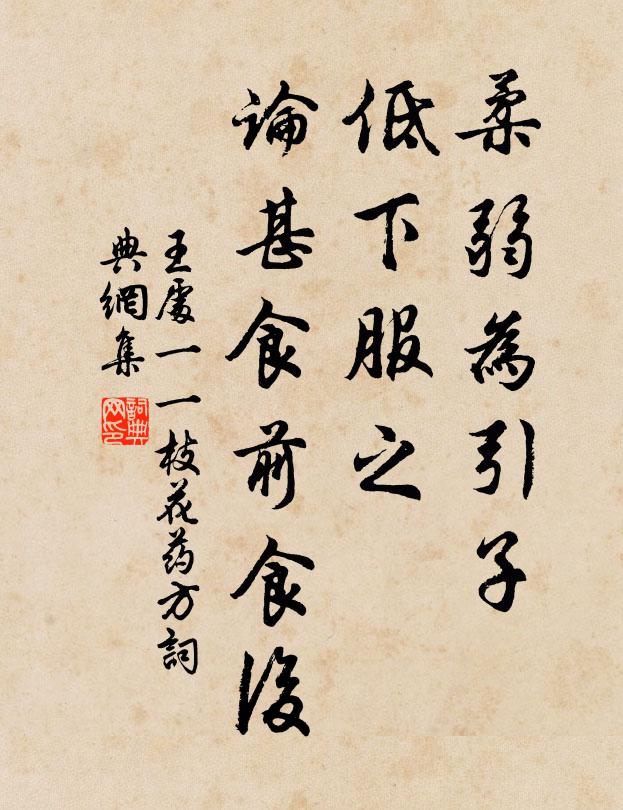 柔弱為引子
低下服之
論甚食前食後
王處一一枝花药方詞
典網集
詞典网印